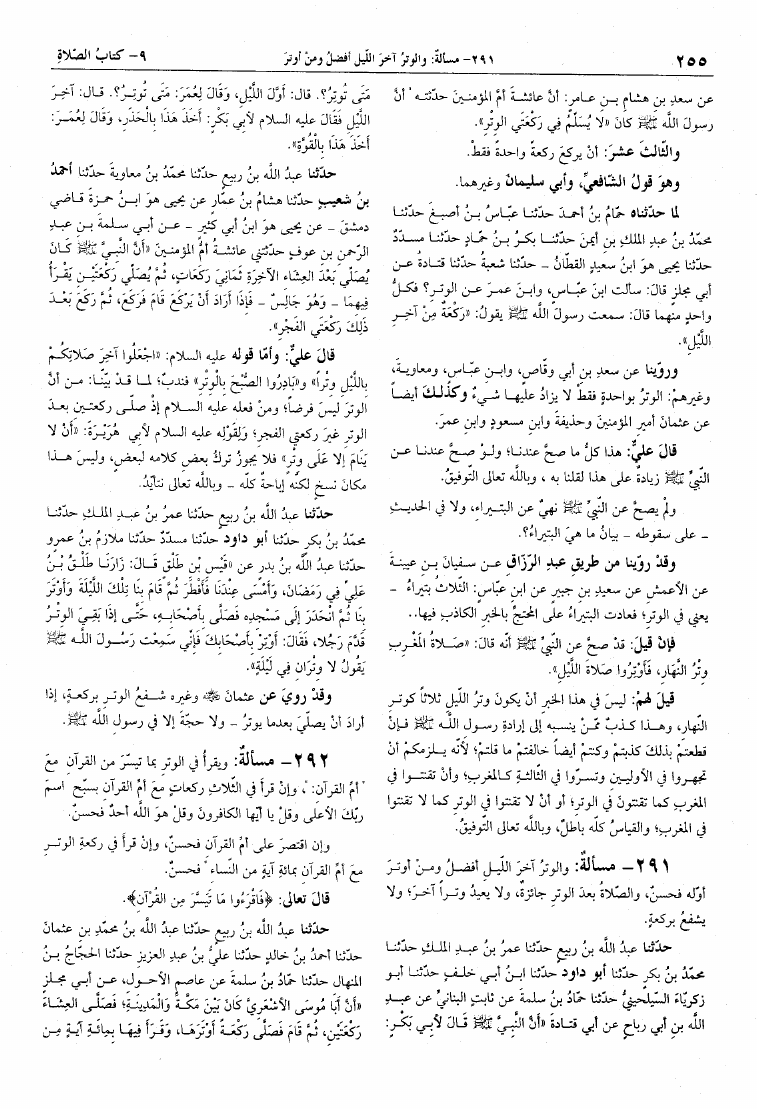 ٢٥٥
٢٩١- مسألة: والوترُ آخرَ اللّيل أفضلُ ومنْ أوترَ
٩- كتابُ الصّلاةِ
عن سعدِ بنِ هشامِ بنِ عامرٍ: أنَّ عائشةَ أمَّ المؤمنينَ حدّثته "أنَّ
رسولَ اللَّه ﷺ كانَ «لا يُسَلِّمُ فِي رَكْعَتَي الوِتْرِ».
والثّالثَ عشرَ: أنْ يركعَ ركعةً واحدةً فقطْ.
وهوَ قولُ الشّافعيِّ، وأبي سليمانَ وغيرهما.
لما حدّثناه حمّامُ بنُ أحمدَ حدّثنا عبّاسُ بنُ أصبغَ حدّثنا
محمّدُ بنُ عبدِ الملكِ بنِ أيمنَ حدّثنا بكرُ بنُ حمّادٍ حدّثنا مسدّدٌ
حدّثنا يحيى هوَ ابنُ سعيدٍ القطّانُ - حدّثنا شعبةُ حدّثنا قتادةُ عن
أبي مجلزٍ قالَ: سألت ابنَ عبّاسٍ، وابنَ عمرَ عن الوترِ؟ فكلُّ
واحدٍ منهما قالَ: سمعت رسولَ اللَّه ﷺ يقولُ: «رَكْعَةٌ مِنْ آخِرِ
اللَّيْلِ».
وروّينا عن سعدِ بنِ أبي وقّاصٍ، وابنِ عبّاسٍ، ومعاويةَ،
وغيرهمْ: الوترُ بواحدةٍ فقطْ لا يزادُ عليها شيءٌ وكذلكَ أيضاً
عن عثمانَ أميرِ المؤمنينَ وحذيفةَ وابنِ مسعودٍ وابنِ عمرَ.
قالَ عليٌّ: هذا كلُّ ما صحَّ عندنا؛ ولوْ صحَّ عندنا عن
النّبيِّ ﷺ زيادةٌ على هذا لقلنا به ، وباللَّه تعالى التّوفيقُ.
ولمْ يصحَّ عن النّبيِّ ﷺ نهيٌ عن البتيراءِ، ولا في الحديثِ
- على سقوطه - بيانُ ما هيَ البتيراءُ؟.
وقدْ روّينا من طريقِ عبدِ الرّزّاقِ عن سفيانَ بنِ عيينةَ
عن الأعمشِ عن سعيدِ بنِ جبيرٍ عن ابنِ عبّاسٍ: الثّلاثُ بتيراءُ -
يعني في الوترِ؛ فعادت البتيراءُ على المحتجِّ بالخبرِ الكاذبِ فيها..
فإنْ قيلَ: قدْ صحَّ عن النّبيِّ ﷺ أنّه قالَ: «صَلاةُ المَغْرِبِ
وِتْرُ النَّهَارِ، فَأَوْتِرُوا صَلاةَ اللَّيْلِ».
قيلَ لهمْ: ليسَ في هذا الخبرِ أنْ يكونَ وترُ اللّيلِ ثلاثاً كوترِ
النّهارِ، وهذا كذبٌ ممّنْ ينسبه إلى إرادةِ رسولِ اللَّه ﷺ فإنْ
قطعتمْ بذلكَ كذبتمْ وكنتمْ أيضاً خالفتمْ ما قلتمْ؛ لأنّه يلزمكمْ أنْ
تجهروا في الأوليينِ وتسرّوا في الثّالثةِ كالمغربِ؛ وأنْ تقنتوا في
المغربِ كما تقنتونَ في الوترِ؛ أو أنْ لا تقنتوا في الوترِ كما لا تقنتوا
في المغربِ؛ والقياسُ كلّه باطلٌ، وباللَّه تعالى التّوفيقُ.
٢٩١- مسألةٌ: والوترُ آخرَ اللّيلِ أفضلُ ومنْ أوترَ
أوّله فحسنٌ، والصّلاةُ بعدَ الوترِ جائزةٌ، ولا يعيدُ وتراً آخرَ؛ ولا
يشفعُ بركعةٍ.
حدّثنا عبدُ اللَّه بنُ ربيعٍ حدّثنا عمرُ بنُ عبدِ الملكِ حدّثنا
محمّدُ بنُ بكرٍ حدّثنا أبو داود حدّثنا ابنُ أبي خلفٍ حدّثنا أبو
زكريّاءَ السّيلحينيُّ حدّثنا حمّادُ بنُ سلمةَ عن ثابتٍ البنانيِّ عن عبدِ
اللَّه بنِ أبي رباحٍ عن أبي قتادةَ «أَنَّ النَّبِيَّ ﷺ قَالَ لأبي بَكْرٍ:
مَتَى تُوتِرُ؟. قال: أَوَّلَ اللَّيْلِ، وَقَالَ لِعُمَرَ: مَتَى تُوتِرُ؟. قال: آخِرَ
اللَّيْلِ فَقَالَ عليه السلام لأبي بَكْرٍ: أَخَذَ هَذَا بِالْحَذَرِ، وَقَالَ لِعُمَرَ:
أَخَذَ هَذَا بِالْقُوَّةِ».
حدّثنا عبدُ اللَّه بنُ ربيعٍ حدّثنا محمّدُ بنُ معاويةَ حدّثنا أحمدُ
بنُ شعيبٍ حدّثنا هشامُ بنُ عمّارٍ عن يحيى هوَ ابنُ حمزةَ قاضي
دمشقَ - عن يحيى هوَ ابنُ أبي كثيرٍ - عن أبي سلمةَ بنِ عبدِ
الرّحمنِ بنِ عوفٍ حدّثتني عائشةُ أمُّ المؤمنينَ «أَنَّ النَّبِيَّ ﷺ كَانَ
يُصَلِّي بَعْدَ العِشَاءِ الآخِرَةِ ثَمَانِيَ رَكَعَاتٍ، ثُمَّ يُصَلِّي رَكْعَتَيْنِ يَقْرَأُ
فِيهِمَا - وَهُوَ جَالِسٌ - فَإِذَا أَرَادَ أَنْ يَرْكَعَ قَامَ فَرَكَعَ، ثُمَّ رَكَعَ بَعْدَ
ذَلِكَ رَكْعَتَي الفَجْرِ».
قالَ عليٌّ: وأمّا قوله عليه السلام: «اجْعَلُوا آخِرَ صَلاتِكُمْ
بِاللَّيْلِ وِتْراً» و«بَادِرُوا الصُّبْحَ بِالْوِتْرِ» فندبٌ؛ لما قدْ بيّنّا: من أنَّ
الوترَ ليسَ فرضاً؛ ومنْ فعله عليه السلام إذْ صلّى ركعتينِ بعدَ
الوترِ غيرَ ركعتي الفجرِ؛ وَلِقَوْلِهِ عليه السلام لأبي هُرَيْرَةَ: «أَنْ لا
يَنَامَ إلا عَلَى وِتْرٍ» فلا يجوزُ تركُ بعضِ كلامه لبعضٍ، وليسَ هذا
مكانَ نسخٍ لكنّه إباحةٌ كلّه - وباللَّه تعالى نتأيّدُ.
حدّثنا عبدُ اللَّه بنُ ربيعٍ حدّثنا عمرُ بنُ عبدِ الملكِ حدّثنا
محمّدُ بنُ بكرٍ حدّثنا أبو داود حدّثنا مسدّدٌ حدّثنا ملازمُ بنُ عمرٍو
حدّثنا عبدُ اللَّه بنُ بدرٍ عن «قَيْسِ بْنِ طَلْقٍ قَالَ: زَارَنَا طَلْقُ بْنُ
عَلِيٍّ فِي رَمَضَانَ، وَأَمْسَى عِنْدَنَا فَأَفْطَرَ ثُمَّ قَامَ بِنَا تِلْكَ اللَّيْلَةَ وَأَوْتَرَ
بِنَا ثُمَّ انْحَدَرَ إلَى مَسْجِدِهِ فَصَلَّى بِأَصْحَابِهِ، حَتَّى إذَا بَقِيَ الوِتْرُ
قَدَّمَ رَجُلا، فَقَالَ: أَوْتِرْ بِأَصْحَابِكَ فَإِنِّي سَمِعْت رَسُولَ اللَّهِ ﷺ
يَقُولُ لا وِتْرَانِ فِي لَيْلَةٍ».
وقدْ رويَ عن عثمانَ ﷺ وغيره شفعُ الوترِ بركعةٍ، إذا
أرادَ أنْ يصلّيَ بعدما يوترُ - ولا حجّةَ إلا في رسولِ اللَّه ﷺ.
٢٩٢- مسألةٌ: ويقرأُ في الوترِ بما تيسّرَ من القرآنِ معَ
أمِّ القرآنِ: ، وإنْ قرأَ في الثّلاثِ ركعاتٍ معَ أمِّ القرآنِ بسبّحِ اسمَ
ربّكَ الأعلى وقلْ يا أيّها الكافرونَ وقلْ هوَ اللَّه أحدٌ فحسنٌ.
وإن اقتصرَ على أمِّ القرآنِ فحسنٌ، وإنْ قرأَ في ركعةِ الوترِ
معَ أمِّ القرآنِ بمائةِ آيةٍ من النّساء فحسنٌ.
قالَ تعالى: ﴿فَاقْرَءُوا مَا تَيَسَّرَ مِن القُرْآنِ﴾.
حدّثنا عبدُ اللَّه بنُ ربيعٍ حدّثنا عبدُ اللَّه بنُ محمّدِ بنِ عثمانَ
حدّثنا أحمدُ بنُ خالدٍ حدّثنا عليُّ بنُ عبدِ العزيزِ حدّثنا الحجّاجُ بنُ
المنهالِ حدّثنا حمّادُ بنُ سلمةَ عن عاصمٍ الأحولِ، عن أبي مجلزٍ
«أَنَّ أَبَا مُوسَى الأشْعَرِيَّ كَانَ بَيْنَ مَكَّةَ وَالْمَدِينَةِ؛ فَصَلَّى العِشَاءَ
رَكْعَتَيْنِ، ثُمَّ قَامَ فَصَلَّى رَكْعَةً أَوْتَرَهَا، وَقَرَأَ فِيهَا بِمِائَةِ آيَةٍ مِنْ